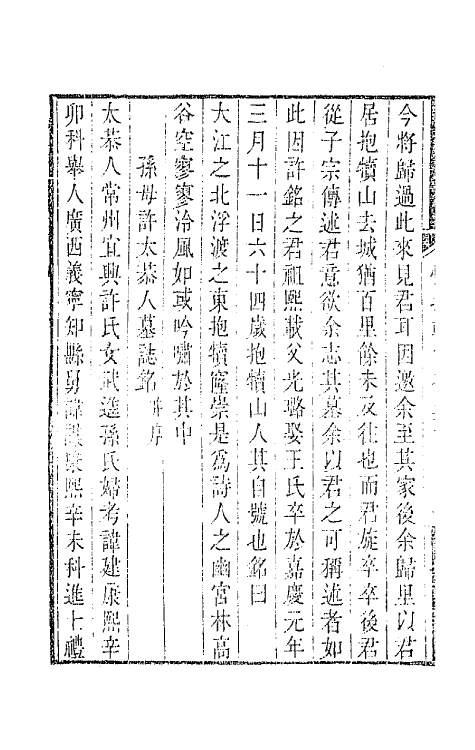 今將歸過此來見君耳因邀余至其家後余歸里以君
居抱犢山去城猶百里餘未及往也而君旋卒卒後君
從子宗傳述君意欲余志其墓余以君之可稱述者如
此因許銘之君祖熙載父光璐娶王氏卒於嘉慶元年
三月十一日六十四歲抱犢山人其自號也銘曰
大江之北浮渡之東抱犢窿崇是爲詩人之幽宮林高
谷空寥寥泠風如或吟嘯於其中
孫母許太恭人墓誌銘 并序
太恭人常州宜興許氏女武進孫氏婦考諱建康熙辛
卯科舉人廣西義寧知縣舅諱 康熙辛未科進士禮